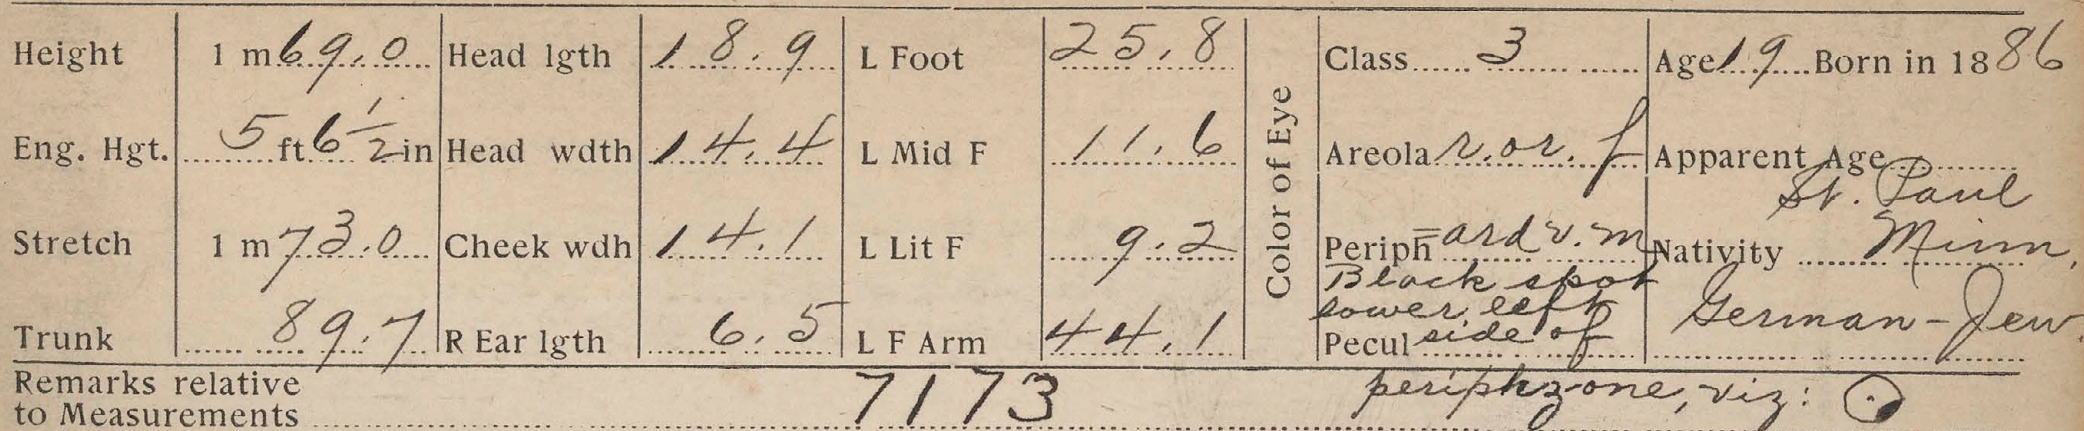 Height 1 m 69.0 Head lgth 18.9 L Foot 25.8 Class 3 Age 19 Born in 1886
Eng. Hgt. 5 ft 6 1/2 in Head wdth 14.4 L Mid F 11.6 Color of Eye Areola r. or. f Apparent Age
St. Paul
Stretch 1 m 73.0 Cheek wdh 14.1 L Lit F 9.2 Periph = ard v. m Nativity Minn.
Black spot
lower left
Trunk 89.7 R Ear lgth 6.5 L F Arm 44.1 Pecul side of German-Jew.
Remarks relative
to Measurements 7173 periph zone, viz: